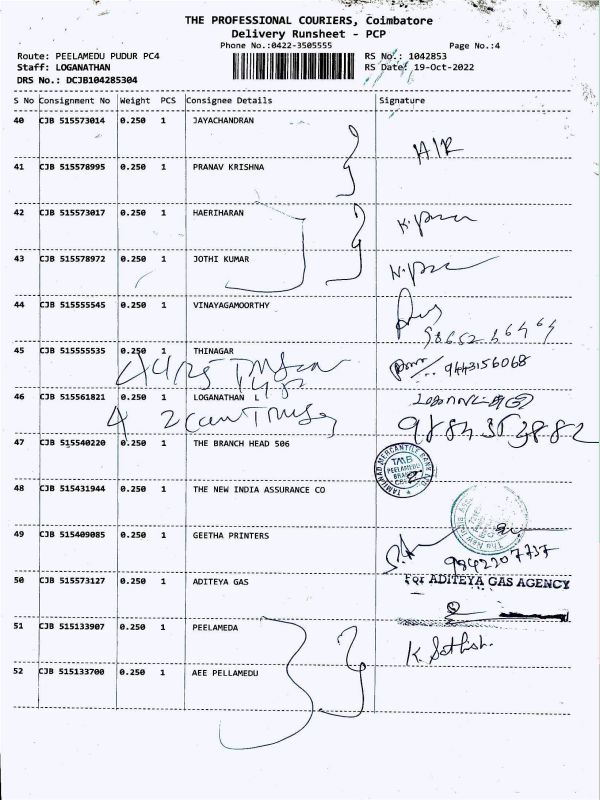 THE PROFESSIONAL COURIERS, Coimbatore
Delivery Runsheet - PCP
Phone No.:0422-3505555 Page No.:4
Route: PEELAMEDU PUDUR PC4 RS No.: 1042853
Staff: LOGANATHAN RS Date: 19-Oct-2022
DRS No.: DCJB104285304
S No Consignment No Weight PCS Consignee Details Signature
40 CJB 515573014 0.250 1 JAYACHANDRAN
41 CJB 515578995 0.250 1 PRANAV KRISHNA
42 CJB 515573017 0.250 1 HAERIHARAN
43 CJB 515578972 0.250 1 JOTHI KUMAR
44 CJB 515555545 0.250 1 VINAYAGAMOORTHY
45 CJB 515555535 0.250 1 THINAGAR
9443156068
46 CJB 515561821 0.250 1 LOGANATHAN L
47 CJB 515540220 0.250 1 THE BRANCH HEAD 506
TAMILNAD MERCANTILE BANK LTD.
TMB
PEELAMEDU
BRANCH
48 CJB 515431944 0.250 1 THE NEW INDIA ASSURANCE CO
49 CJB 515409085 0.250 1 GEETHA PRINTERS
9842207737
50 CJB 515573127 0.250 1 ADITEYA GAS
For ADITEYA GAS AGENCY
51 CJB 515133907 0.250 1 PEELAMEDA
K. Sathish.
52 CJB 515133700 0.250 1 AEE PELLAMEDU